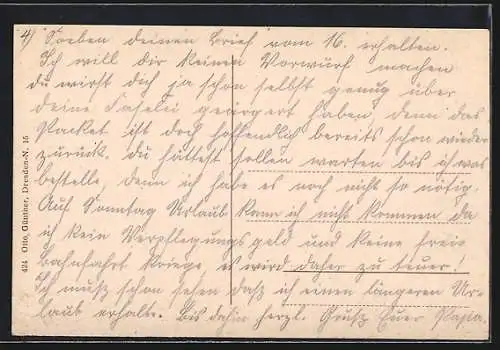 4) Soeben deinen Brief vom 16. erhalten.
Ich will dir keinen Vorwurf machen
du wirst dich ja schon selbst genug über
deine Faselei geärgert haben, denn das
Packet ist doch hoffentlich bereits schon wieder
zurück. du hättest sollen warten bis ich was
bestelle, denn ich habe es noch nicht so nötig.
Auf Sonntag Urlaub kann ich nicht kommen da
ich kein Verpflegungsgeld und keine freie
Bahnfahrt kriege, es wird daher zu teuer!
Ich muß schon sehen daß ich einen längeren Ur-
laub erhalte. Bis dahin herzl. Gruß Euer Papa.
424 Otto Günther, Dresden-N. 15